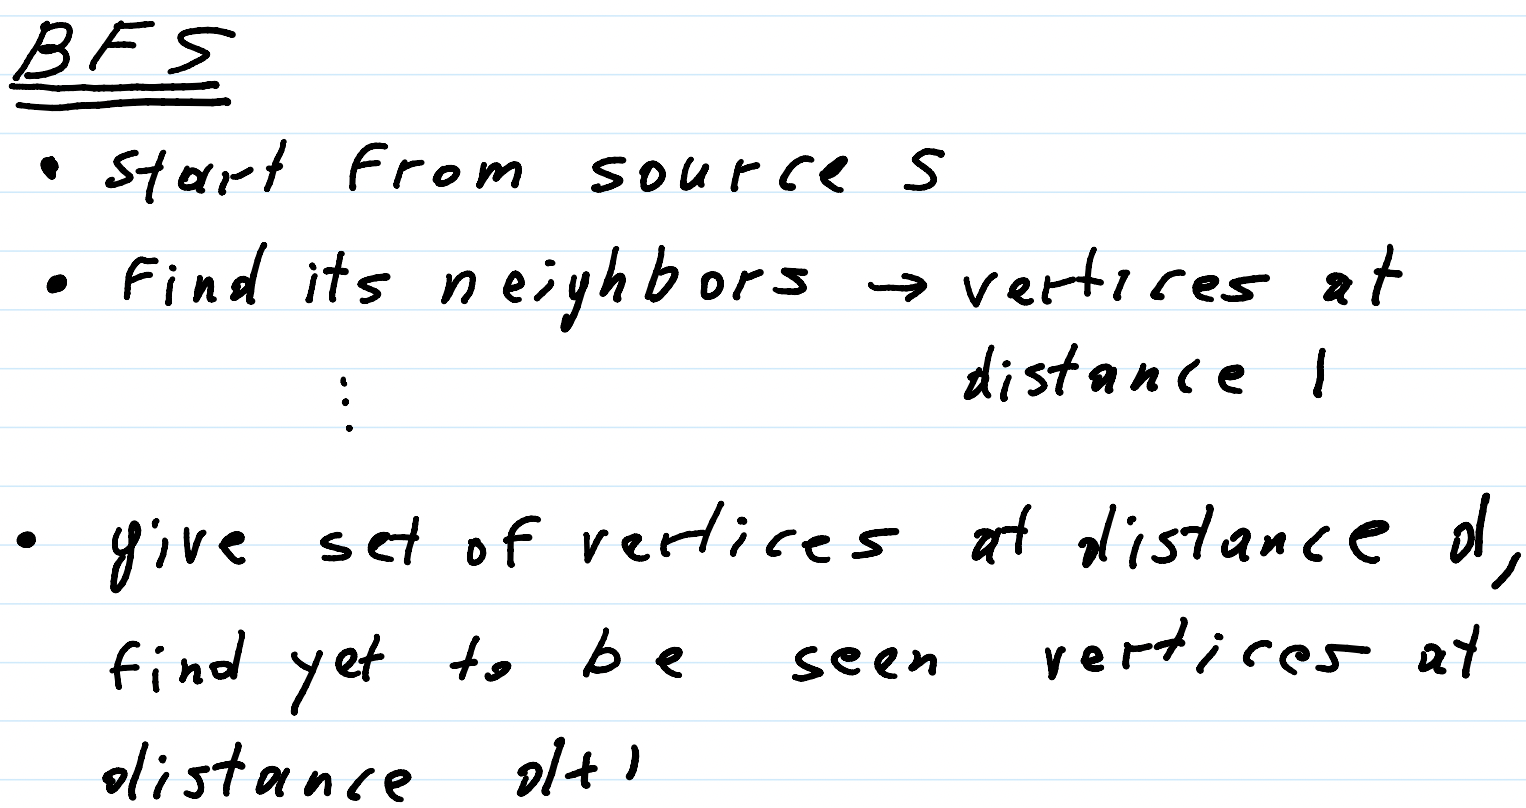 BFS
• start from source S
• Find its neighbors → vertices at
distance 1
⋮
• give set of vertices at distance d,
find yet to be seen vertices at
distance d+1